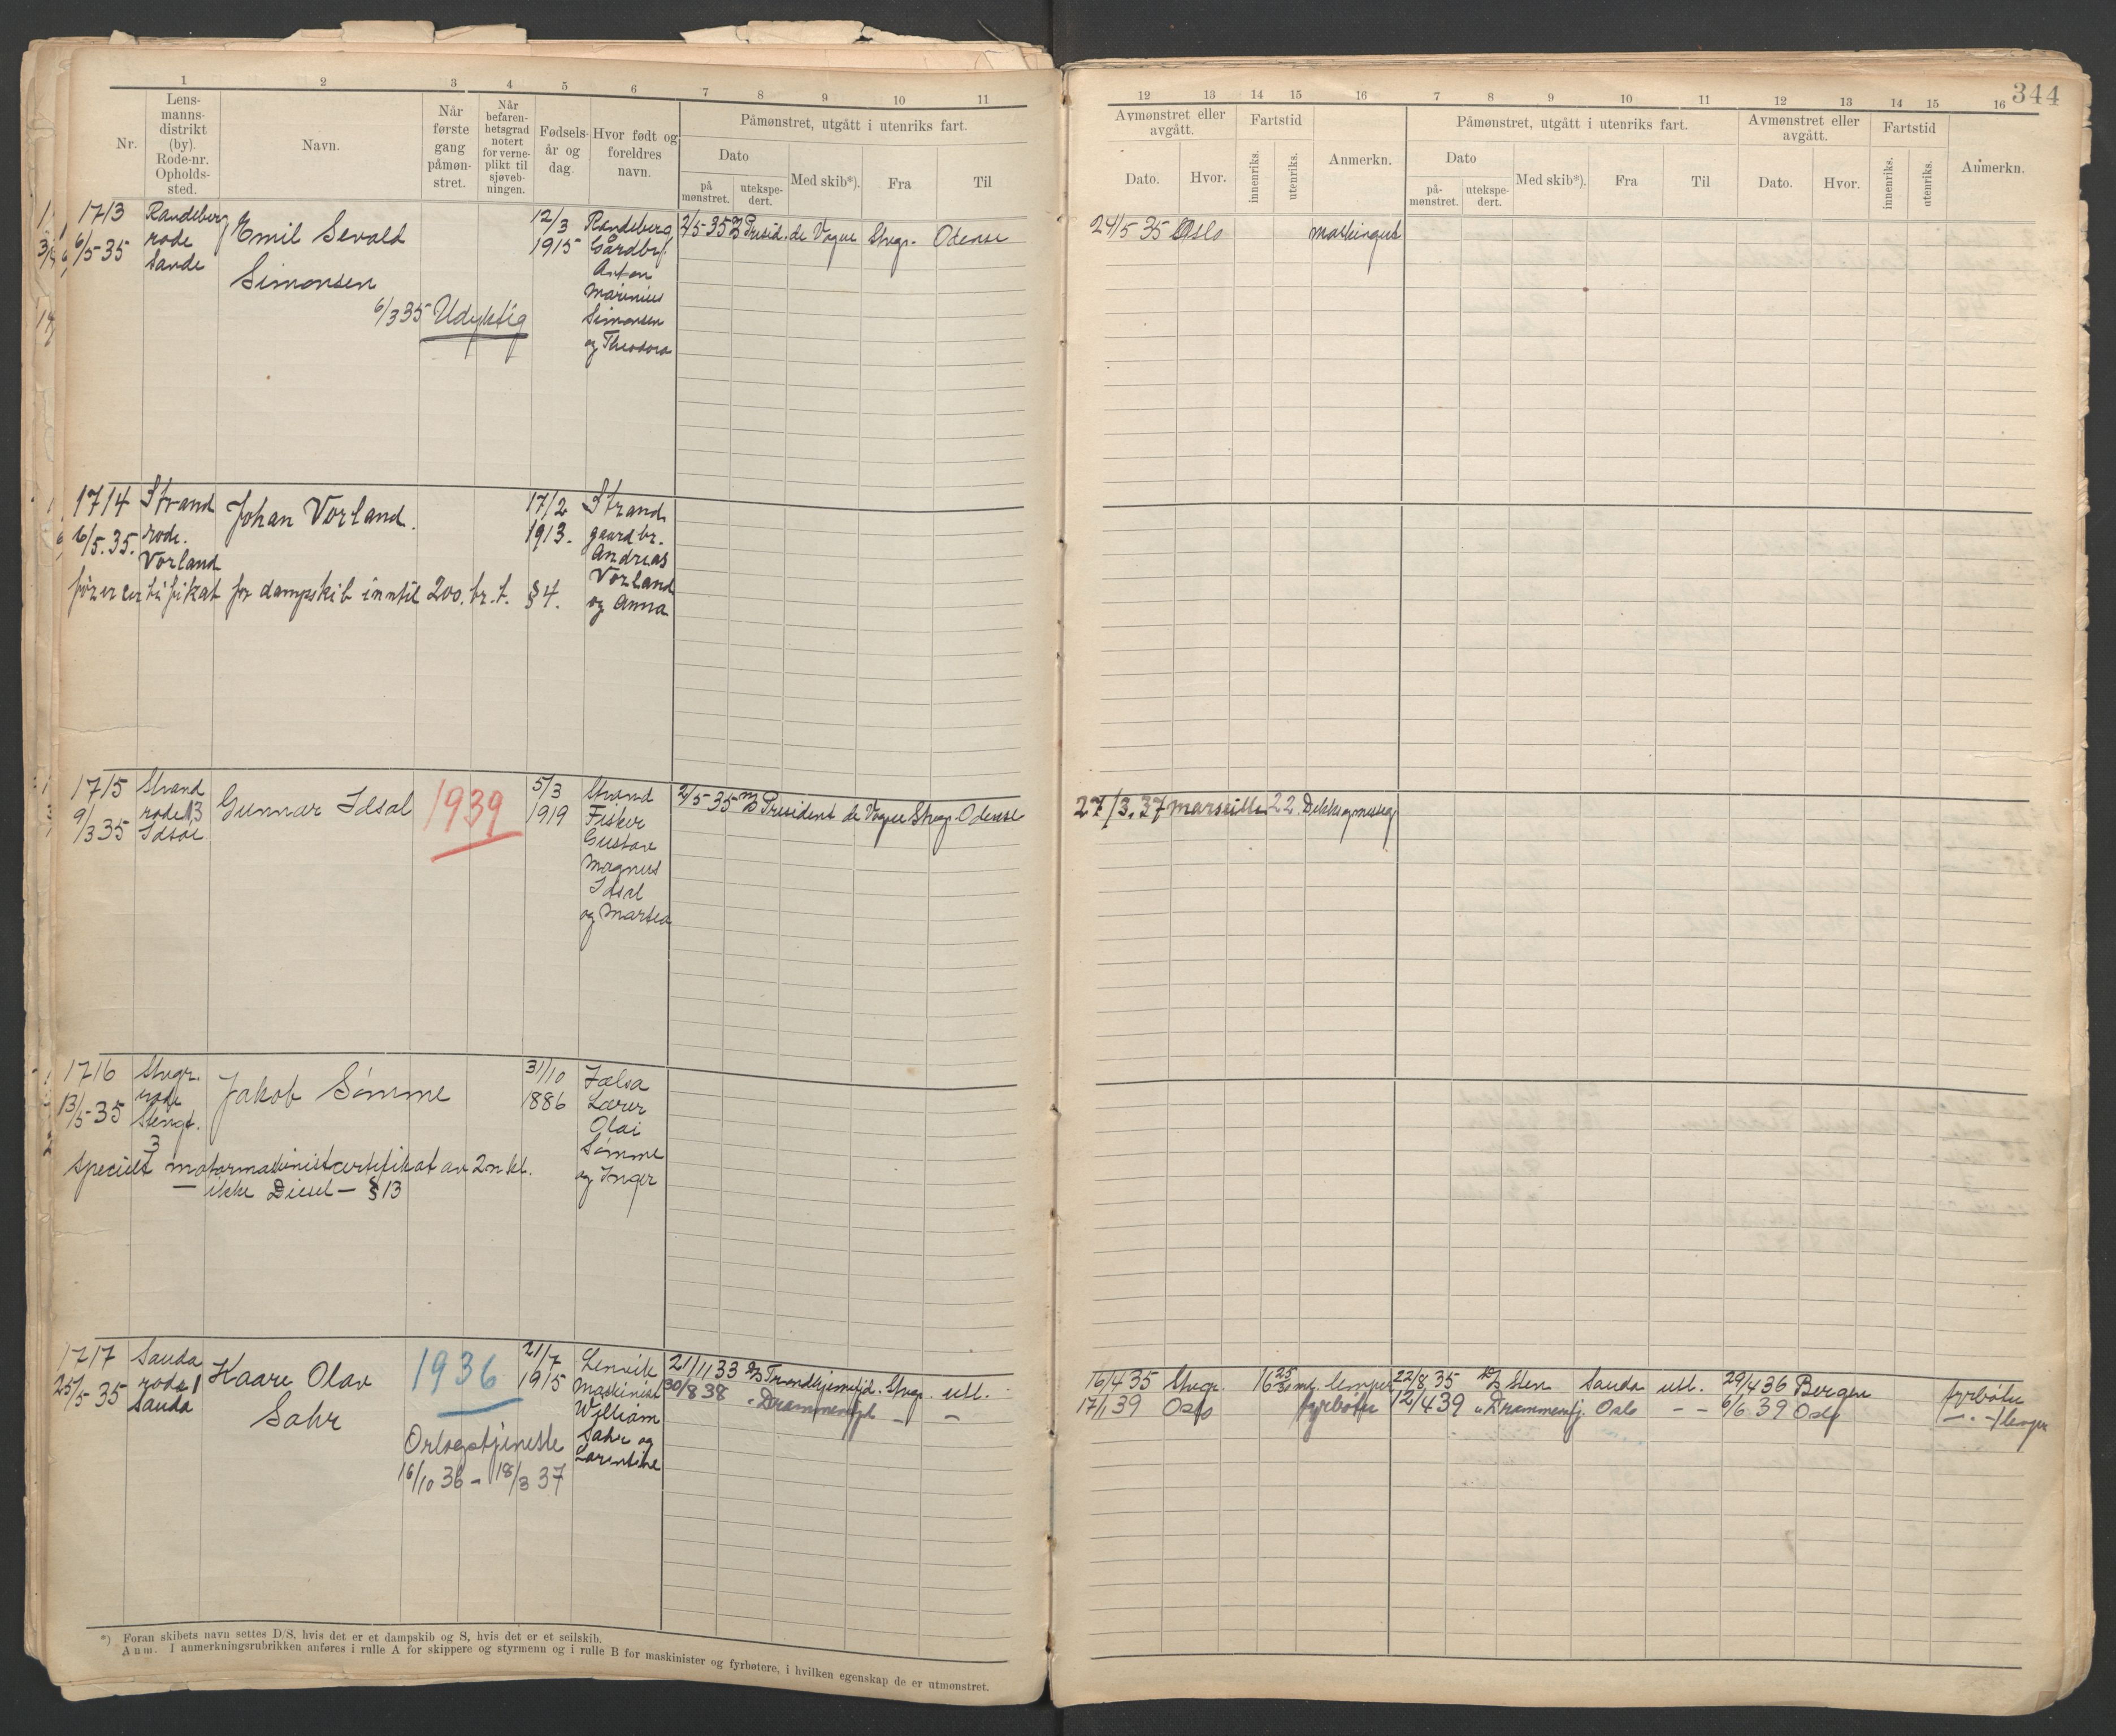 344
1 2 3 4 5 6 7 8 9 10 11
Nr.
Lens-
manns-
distrikt
(by).
Rode-nr.
Opholds-
sted.
Navn.
Når
første
gang
påmøn-
stret.
Når
befaren-
hetsgrad
notert
for verne-
plikt til
sjøveb-
ningen.
Fødsels-
år og
dag.
Hvor født og
foreldres
navn.
Påmønstret, utgått i utenriks fart.
Dato
på
mønstret.
utekspe-
dert.
Med skib*).
Fra
Til
12 13 14 15 16 7 8 9 10 11 12 13 14 15 16
Avmønstret eller
avgått.
Dato.
Hvor.
Fartstid
innenriks.
utenriks.
Anmerkn.
Påmønstret, utgått i utenriks fart.
Dato
på-
mønstret.
utekspe-
dert.
Med skib*).
Fra
Til
Avmønstret eller
avgått.
Dato.
Hvor.
Fartstid
innenriks.
utenriks.
Anmerkn.
1713
6/5-35
Randeberg
rode
Sande
Emil Sevald
Simonsen
6/3 35 Udyktig
12/3
1915
Randeberg
Gårdbr.
Anton
Marinius
Simonsen
og Theodora
2/5-35 Presid. de Vogue Stvgr. Odense
24/5-35 Oslo
maskingut
1714
6/5.35.
Strand
rode.
Vorland
Johan Vorland.
17/2
1913.
Strand,
gaardbr.
Andreas
Vorland
og Anna
førercertifikat for dampskib inntil 200.br.t. § 4.
1715
9/3 35
Strand
rode 13
Idsøe
Gunnar Idsal
1939
5/3
1919
Strand
Fisker
Gustav
Magnus
Idsal
og Martea
2/5-35 President de Vogue Stvgr. Odense
27/3.37 Marseille 22
1716
13/5-35
Stvgr.
rode
Stengt.
3
Jakob Sömme
31/10
1886
Jælsa
Lærer
Olai
Sömme
og Inger
Specielt motormaskinistcertifikat av 2n kl.
— ikke Diesel — § 13
1717
25/5-35
Sauda
rode 1
Sauda
Kaare Olav
Sahr
1936
Orlogstjeneste
16/10 36 - 18/3 37
21/7
1915
Lenvik
Maskinist
William
Sahr og
Larentine
21/11 33 Trondhjemsfjd. Stvgr. utl.
30/8 38 " Drammensfjd — —
16/4 35 Stvgr. lemper
17/1 39 Oslo fyrbøter
22/8 35 Sten Sauda utl. 29/4 36 Bergen fyrbøter
12/4 39 " Drammensfj. Oslo — — 6/6 39 Oslo
*) Foran skibets navn settes D/S, hvis det er et dampskib og S, hvis det er et seilskib.
Anm. I anmerkningsrubrikken anføres i rulle A for skippere og styrmenn og i rulle B for maskinister og fyrbøtere, i hvilken egenskap de er utmønstret.